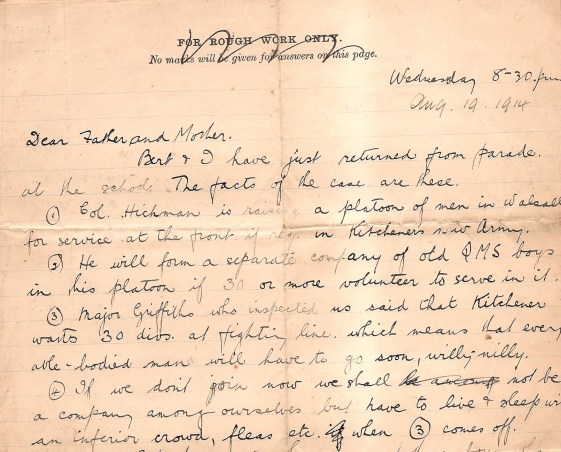 FOR ROUGH WORK ONLY.
No marks will be given for answers on this page.
Wednesday 8-30. p.m
Aug. 19. 1914
Dear Father and Mother.
Bert & I have just returned from parade.
at the school. The facts of the case are these.
① Col. Hickman is raising a platoon of men in Walsall
for service at the front if req. in Kitcheners Army.
② He will form a separate company of old QMS boys
in his platoon if 30 or more volunteer to serve in it.
③ Major Griffiths who inspected us said that Kitchener
wants 30 divs. at fighting line. which means that every
able-bodied man will have to go soon, willy-nilly.
④ If we don't join now we shall not be
a company among ourselves but have to live & sleep wi
an inferior crowd, fleas etc. when ③ comes off.